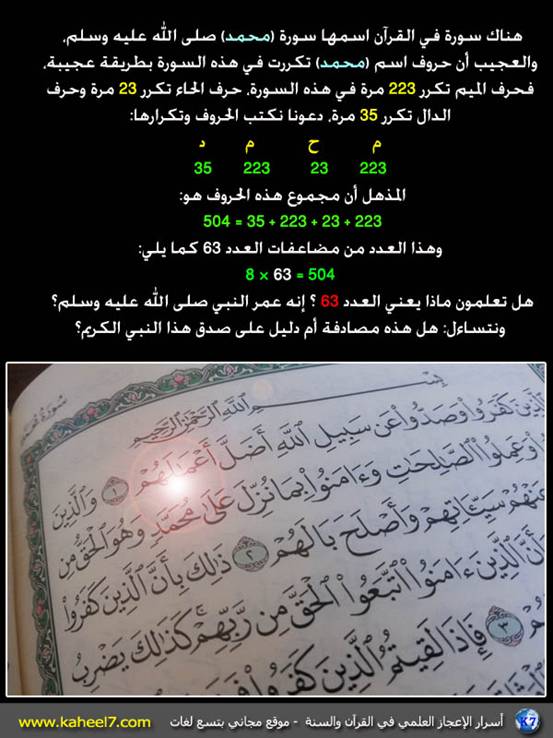 هناك سورة في القرآن اسمها سورة (محمد) صلى الله عليه وسلم،
والعجيب أن حروف اسم (محمد) تكررت في هذه السورة بطريقة عجيبة،
فحرف الميم تكرر 223 مرة في هذه السورة، حرف الحاء تكرر 23 مرة وحرف
الدال تكرر 35 مرة، دعونا نكتب الحروف وتكرارها:
م ح م د
223 23 223 35
المذهل أن مجموع هذه الحروف هو:
504 = 35 + 223 + 23 + 223
وهذا العدد من مضاعفات العدد 63 كما يلي:
8 × 63 = 504
هل تعلمون ماذا يعني العدد 63 ؟ إنه عمر النبي صلى الله عليه وسلم؟
ونتساءل: هل هذه مصادفة أم دليل على صدق هذا النبي الكريم؟
بِسْمِ ٱللَّهِ ٱلرَّحْمَٰنِ ٱلرَّحِيمِ
ٱلَّذِينَ كَفَرُوا۟ وَصَدُّوا۟ عَن سَبِيلِ ٱللَّهِ أَضَلَّ أَعْمَٰلَهُمْ ١ وَٱلَّذِينَ
وَعَمِلُوا۟ ٱلصَّٰلِحَٰتِ وَءَامَنُوا۟ بِمَا نُزِّلَ عَلَىٰ مُحَمَّدٍ وَهُوَ ٱلْحَقُّ مِن
عَنْهُمْ سَيِّـَٔاتِهِمْ وَأَصْلَحَ بَالَهُمْ ٢ ذَٰلِكَ بِأَنَّ ٱلَّذِينَ كَفَرُوا۟
وَأَنَّ ٱلَّذِينَ ءَامَنُوا۟ ٱتَّبَعُوا۟ ٱلْحَقَّ مِن رَّبِّهِمْ ۚ كَذَٰلِكَ يَضْرِبُ
٣ فَإِذَا لَقِيتُمُ ٱلَّذِينَ كَفَرُوا۟
أسرار الإعجاز العلمي في القرآن والسنة - موقع مجاني بتسع لغات www.kaheel7.com
K7